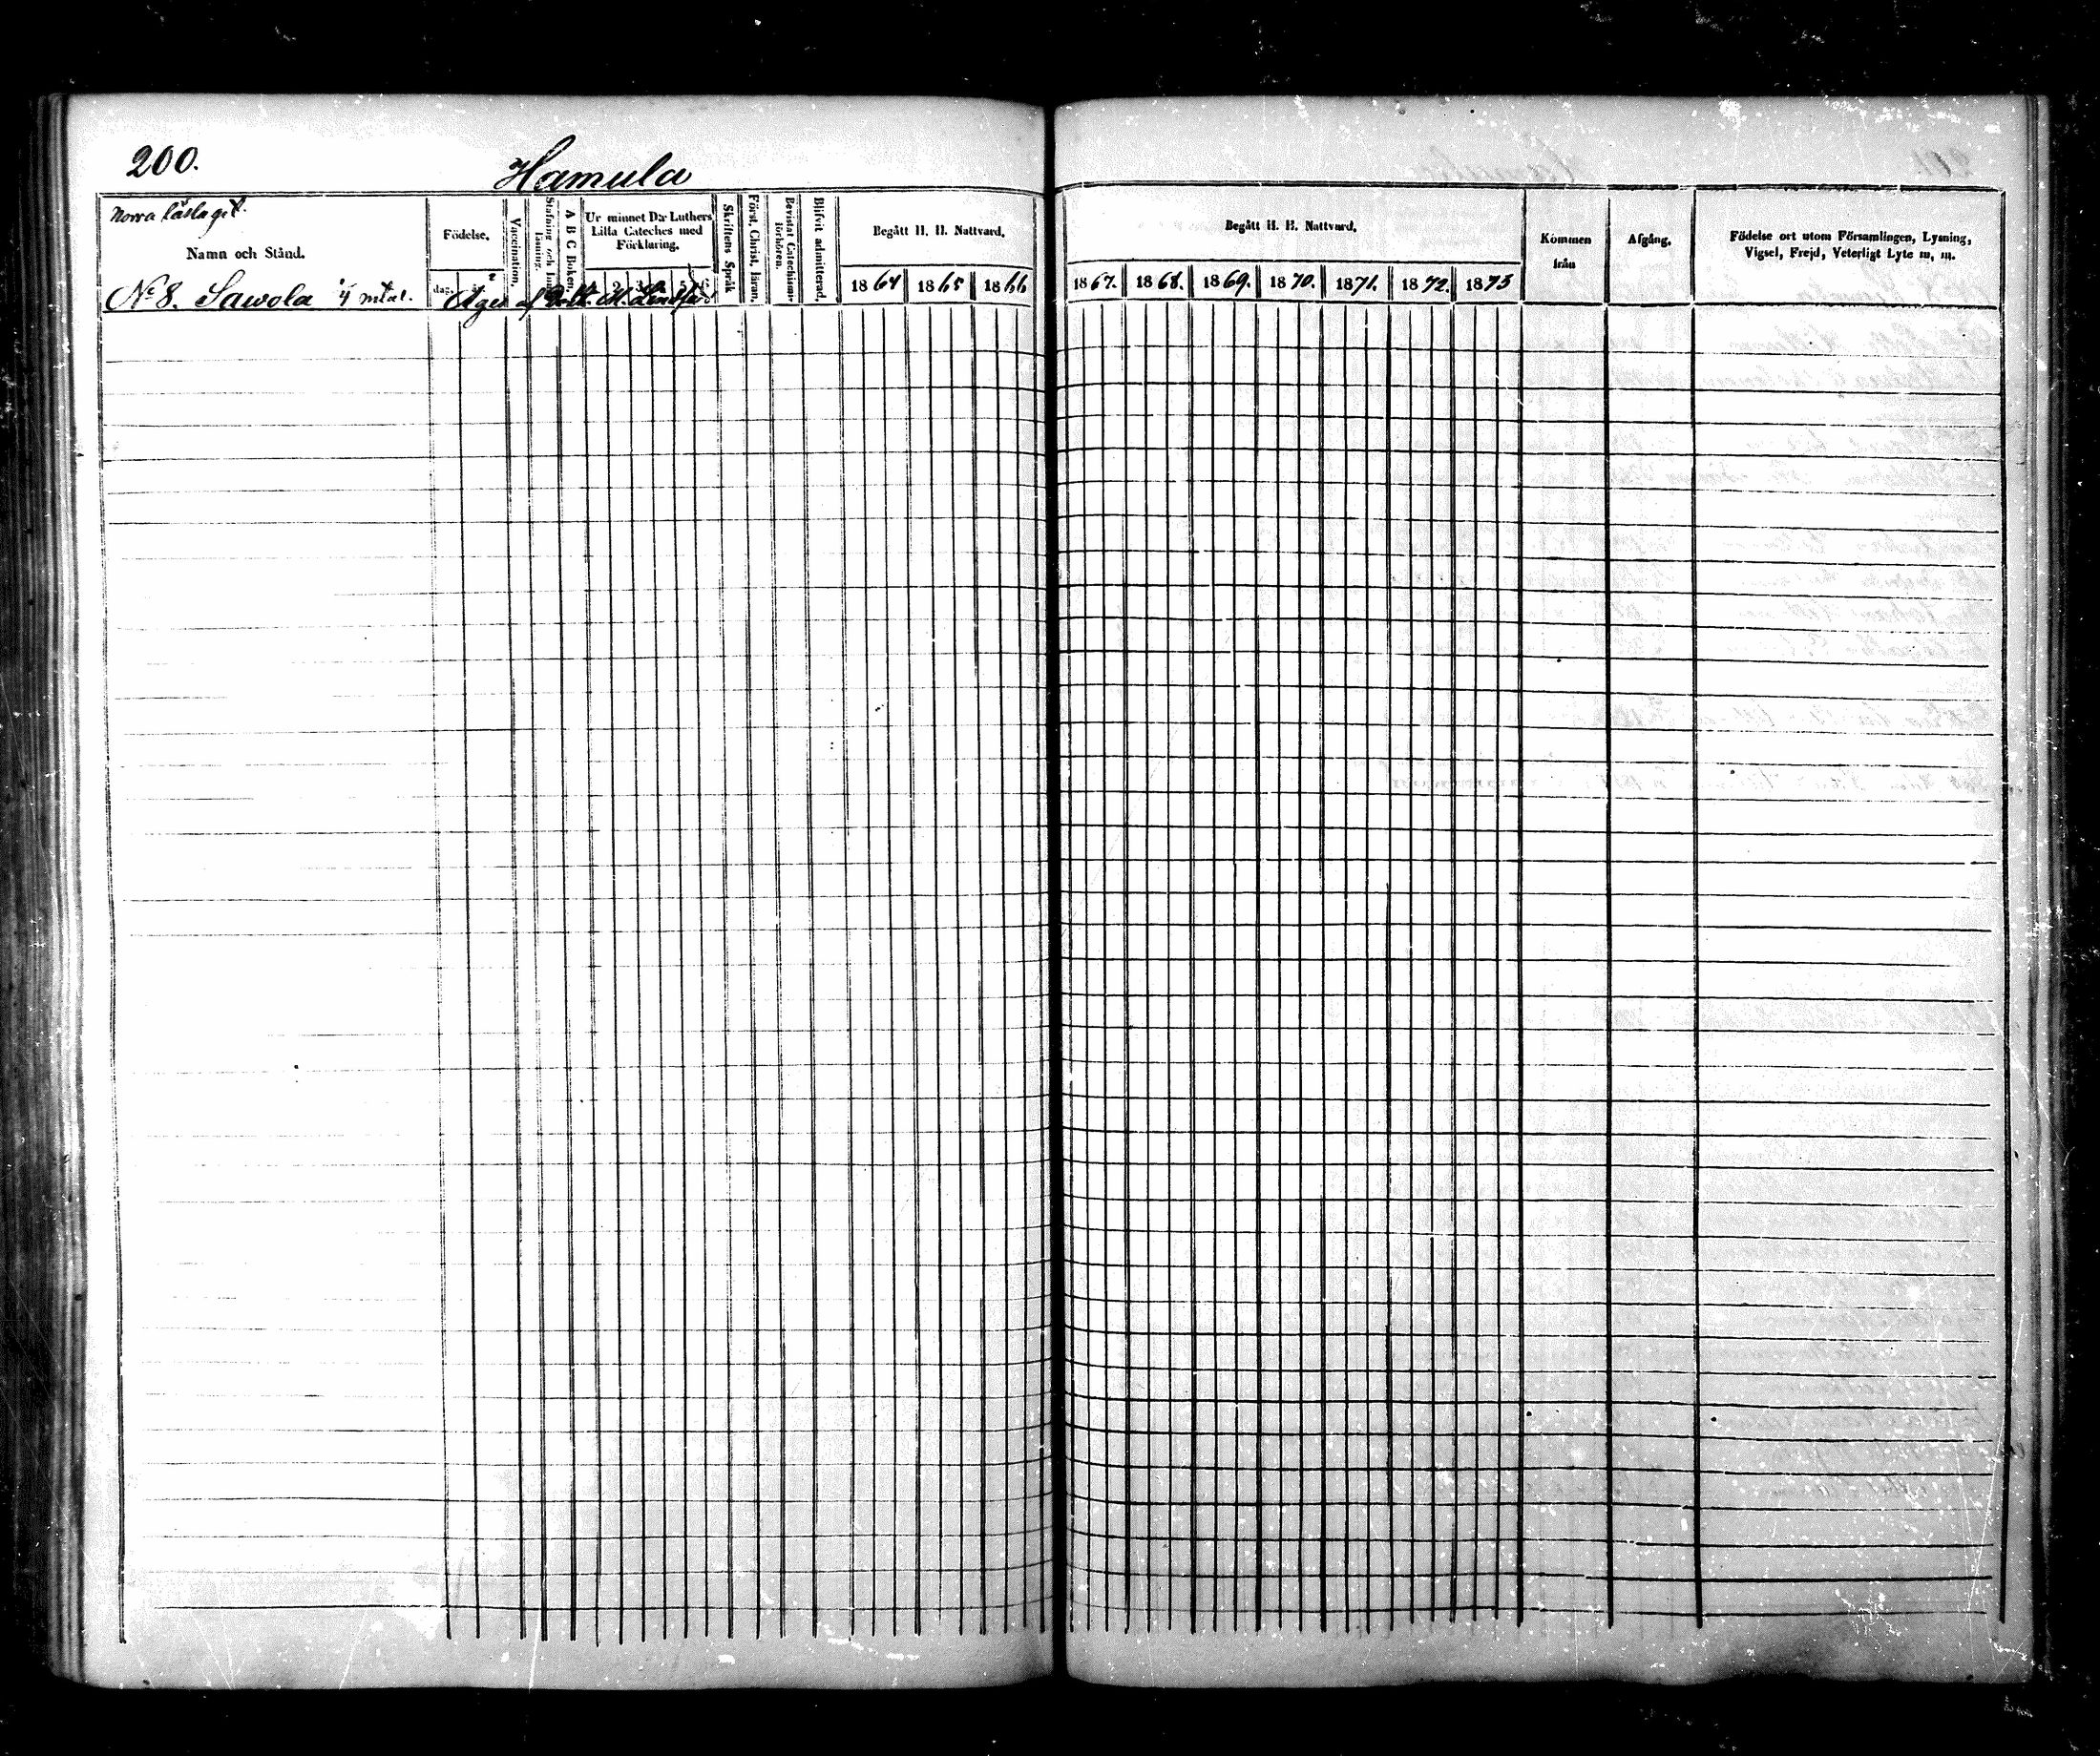 200.
Hamula
Norra läslaget.
Namn och Stånd.
Födelse.
Vaccination.
Stafning och Innanläsning.
A B C Boken.
Ur minnet D:r Luthers
Lilla Cateches med
Förklaring.
Skriftens Språk
Först. Christ. läran.
Bevistat Catechismi-
förhören.
Blifvit admitterad.
Begått H. H. Nattvard.
Begått H. H. Nattvard.
Kommen
från
Afgång.
Födelse ort utom Församlingen, Lysning,
Vigsel, Frejd, Veterligt Lyte m. m.
1864 1865 1866
1867. 1868. 1869. 1870. 1871. 1872. 1873
No 8. Sawola 1/4 mtal. Äges af M.